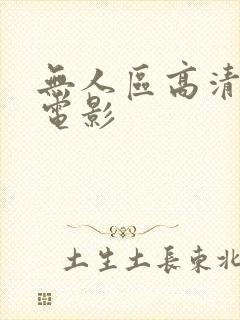 無人區高清
電影
土生土長東北